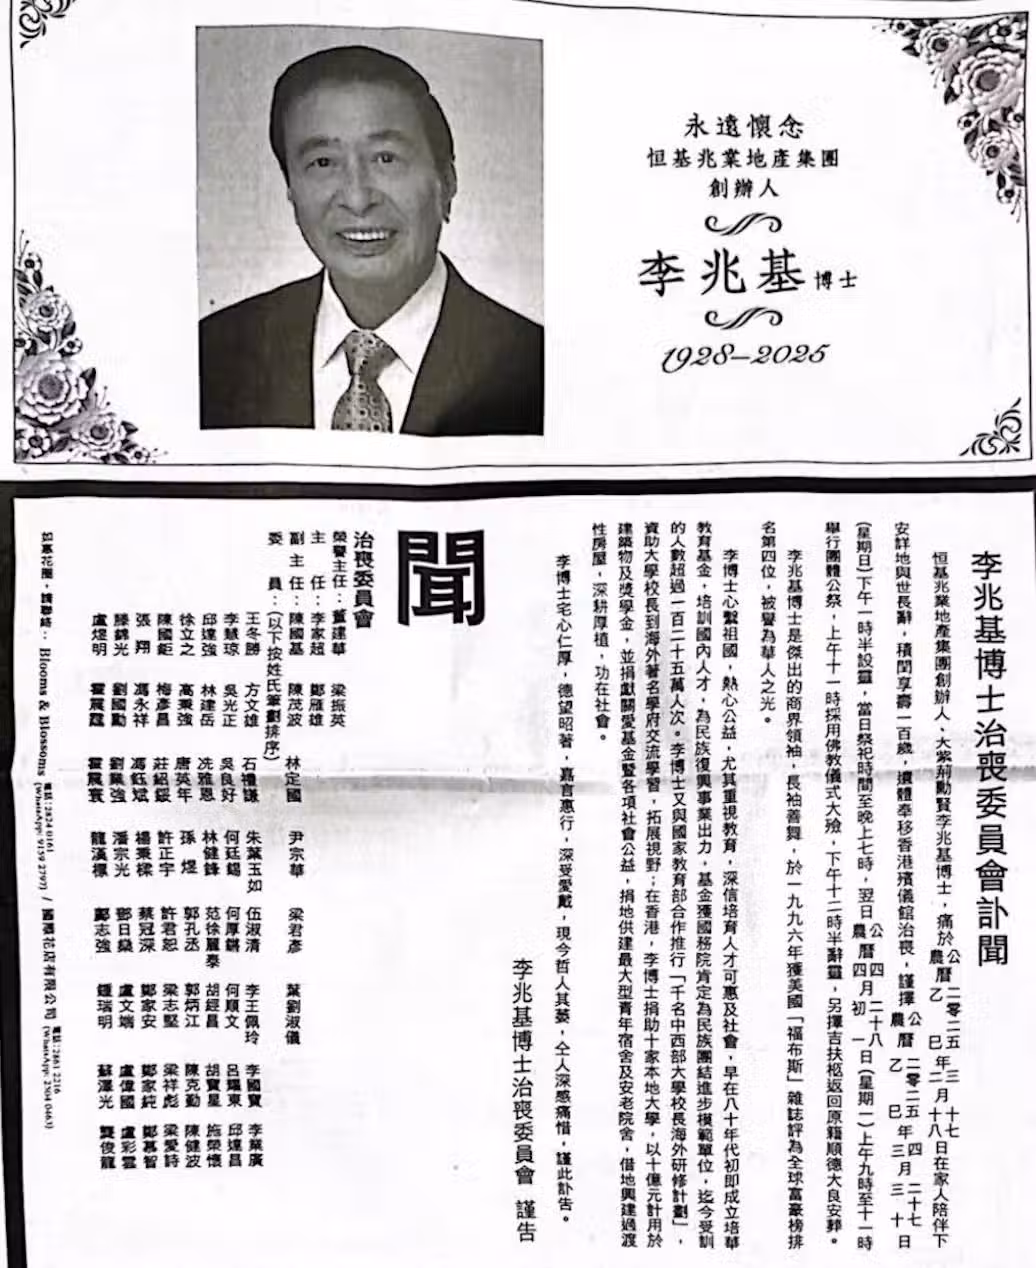 永遠懷念
恒基兆業地產集團
創辦人
李兆基博士
1928–2025
李兆基博士治喪委員會訃聞
恒基兆業地產集團創辦人、大紫荊勳賢李兆基博士，痛於公 二零二五 三 十七
農曆乙 巳年二月十八日在家人陪伴下
安詳地與世長辭，積閏享壽一百歲，遺體奉移香港殯儀館治喪，謹擇公 二零二五 四 二十七
農曆乙 巳年三月三 十日
(星期日)下午一時半設靈，當日祭祀時間至晚上七時，翌日公 四 二十八
農曆四月初 一日(星期一)上午九時至十一時
舉行團體公祭，上午十一時採用佛教儀式大殮，下午十二時半辭靈，另擇吉扶柩返回原籍順德大良安葬。
李兆基博士是傑出的商界領袖，長袖善舞，於一九九六年獲美國「福布斯」雜誌評為全球富豪榜排
名第四位，被譽為華人之光。
李博士心繫祖國，熱心公益，尤其重視教育，深信培育人才可惠及社會，早在八十年代初即成立培華
教育基金，培訓國內人才，為民族復興事業出力，基金獲國務院肯定為民族團結進步模範單位，迄今受訓
的人數超過一百二十五萬人次。李博士又與國家教育部合作推行「千名中西部大學校長海外研修計劃」，
資助大學校長到海外著名學府交流學習，拓展視野；在香港，李博士捐助十家本地大學，以十億元計用於
建築物及獎學金，並捐獻關愛基金暨各項社會公益，捐地供建最大型青年宿舍及安老院舍，借地興建過渡
性房屋，深耕厚植，功在社會。
李博士宅心仁厚，德望昭著，嘉言惠行，深受愛戴，現今哲人其萎，仝人深感痛惜，謹此訃告。
李兆基博士治喪委員會 謹告
聞
治喪委員會
榮譽主任：董建華 梁振英
主任：李家超 鄭雁雄
副主任：陳國基 陳茂波 林定國 尹宗華 梁君彥 葉劉淑儀
委員：(以下按姓氏筆劃排序)
王冬勝 方文雄 石禮謙 朱葉玉如 伍淑清 李王佩玲 李國寶 李業廣
李慧琼 吳光正 吳良好 何廷錫 何厚鏘 何順文 呂耀東 邱達昌
邱達強 林建岳 冼雅恩 林健鋒 范徐麗泰 胡經昌 胡寶星 施榮懷
徐立之 高秉強 唐英年 孫煜 郭孔丞 郭炳江 陳克勤 陳健波
陳國鉅 梅彥昌 莊紹綏 許正宇 許君恕 梁志堅 梁祥彪 梁愛詩
張翔 馮永祥 馮鈺斌 楊秉樑 蔡冠深 鄭家安 鄭家純 鄭慕智
滕錦光 劉國勳 劉業強 潘宗光 鄧日燊 盧文端 盧偉國 盧彩雲
盧煜明 霍震霆 霍震寰 龍漢標 鄺志強 鍾瑞明 蘇澤光 龔俊龍
如惠花圈，請聯絡： Blooms & Blossoms 電話：2824 0161 (WhatsApp: 9159 2797) / 國福花店有限公司 電話：2861 2216 (WhatsApp: 2504 0463)